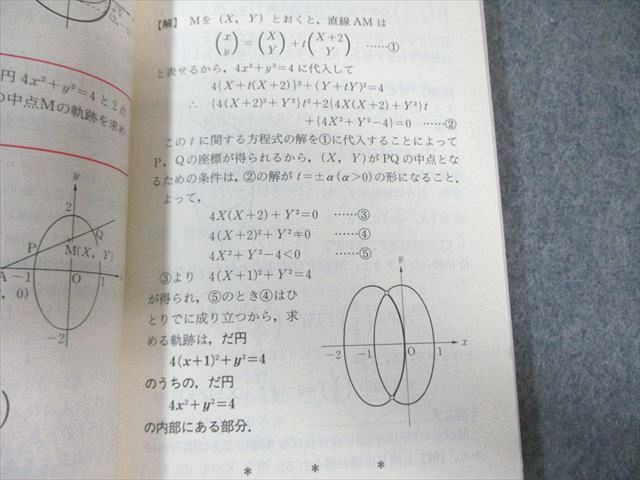 円 4x²+y²=4 と2点
の中点Mの軌跡を求め
y
2
Q
P
M(X, Y)
A
−1
O
1
x
, 0)
−2
【解】 Mを (X, Y) とおくと，直線 AM は
(x y) = (X Y) + t (X+2 Y) ……①
と表せるから，4x²+y²=4 に代入して
4{X+t(X+2)}²+(Y+tY)²=4
∴ {4(X+2)²+Y²}t²+2{4X(X+2)+Y²}t
+{4X²+Y²−4}=0 ……②
この t に関する方程式の解を①に代入することによって
P，Qの座標が得られるから，(X, Y) が PQ の中点とな
るための条件は，②の解が t=±α(α>0) の形になること．
よって，
4X(X+2)+Y²=0 ……③
4(X+2)²+Y²≠0 ……④
4X²+Y²−4<0 ……⑤
③より 4(X+1)²+Y²=4
が得られ，⑤のとき④はひ
とりでに成り立つから，求
める軌跡は，だ円
4(x+1)²+y²=4
のうちの，だ円
4x²+y²=4
の内部にある部分．
y
−2
−1
O
x
* * *